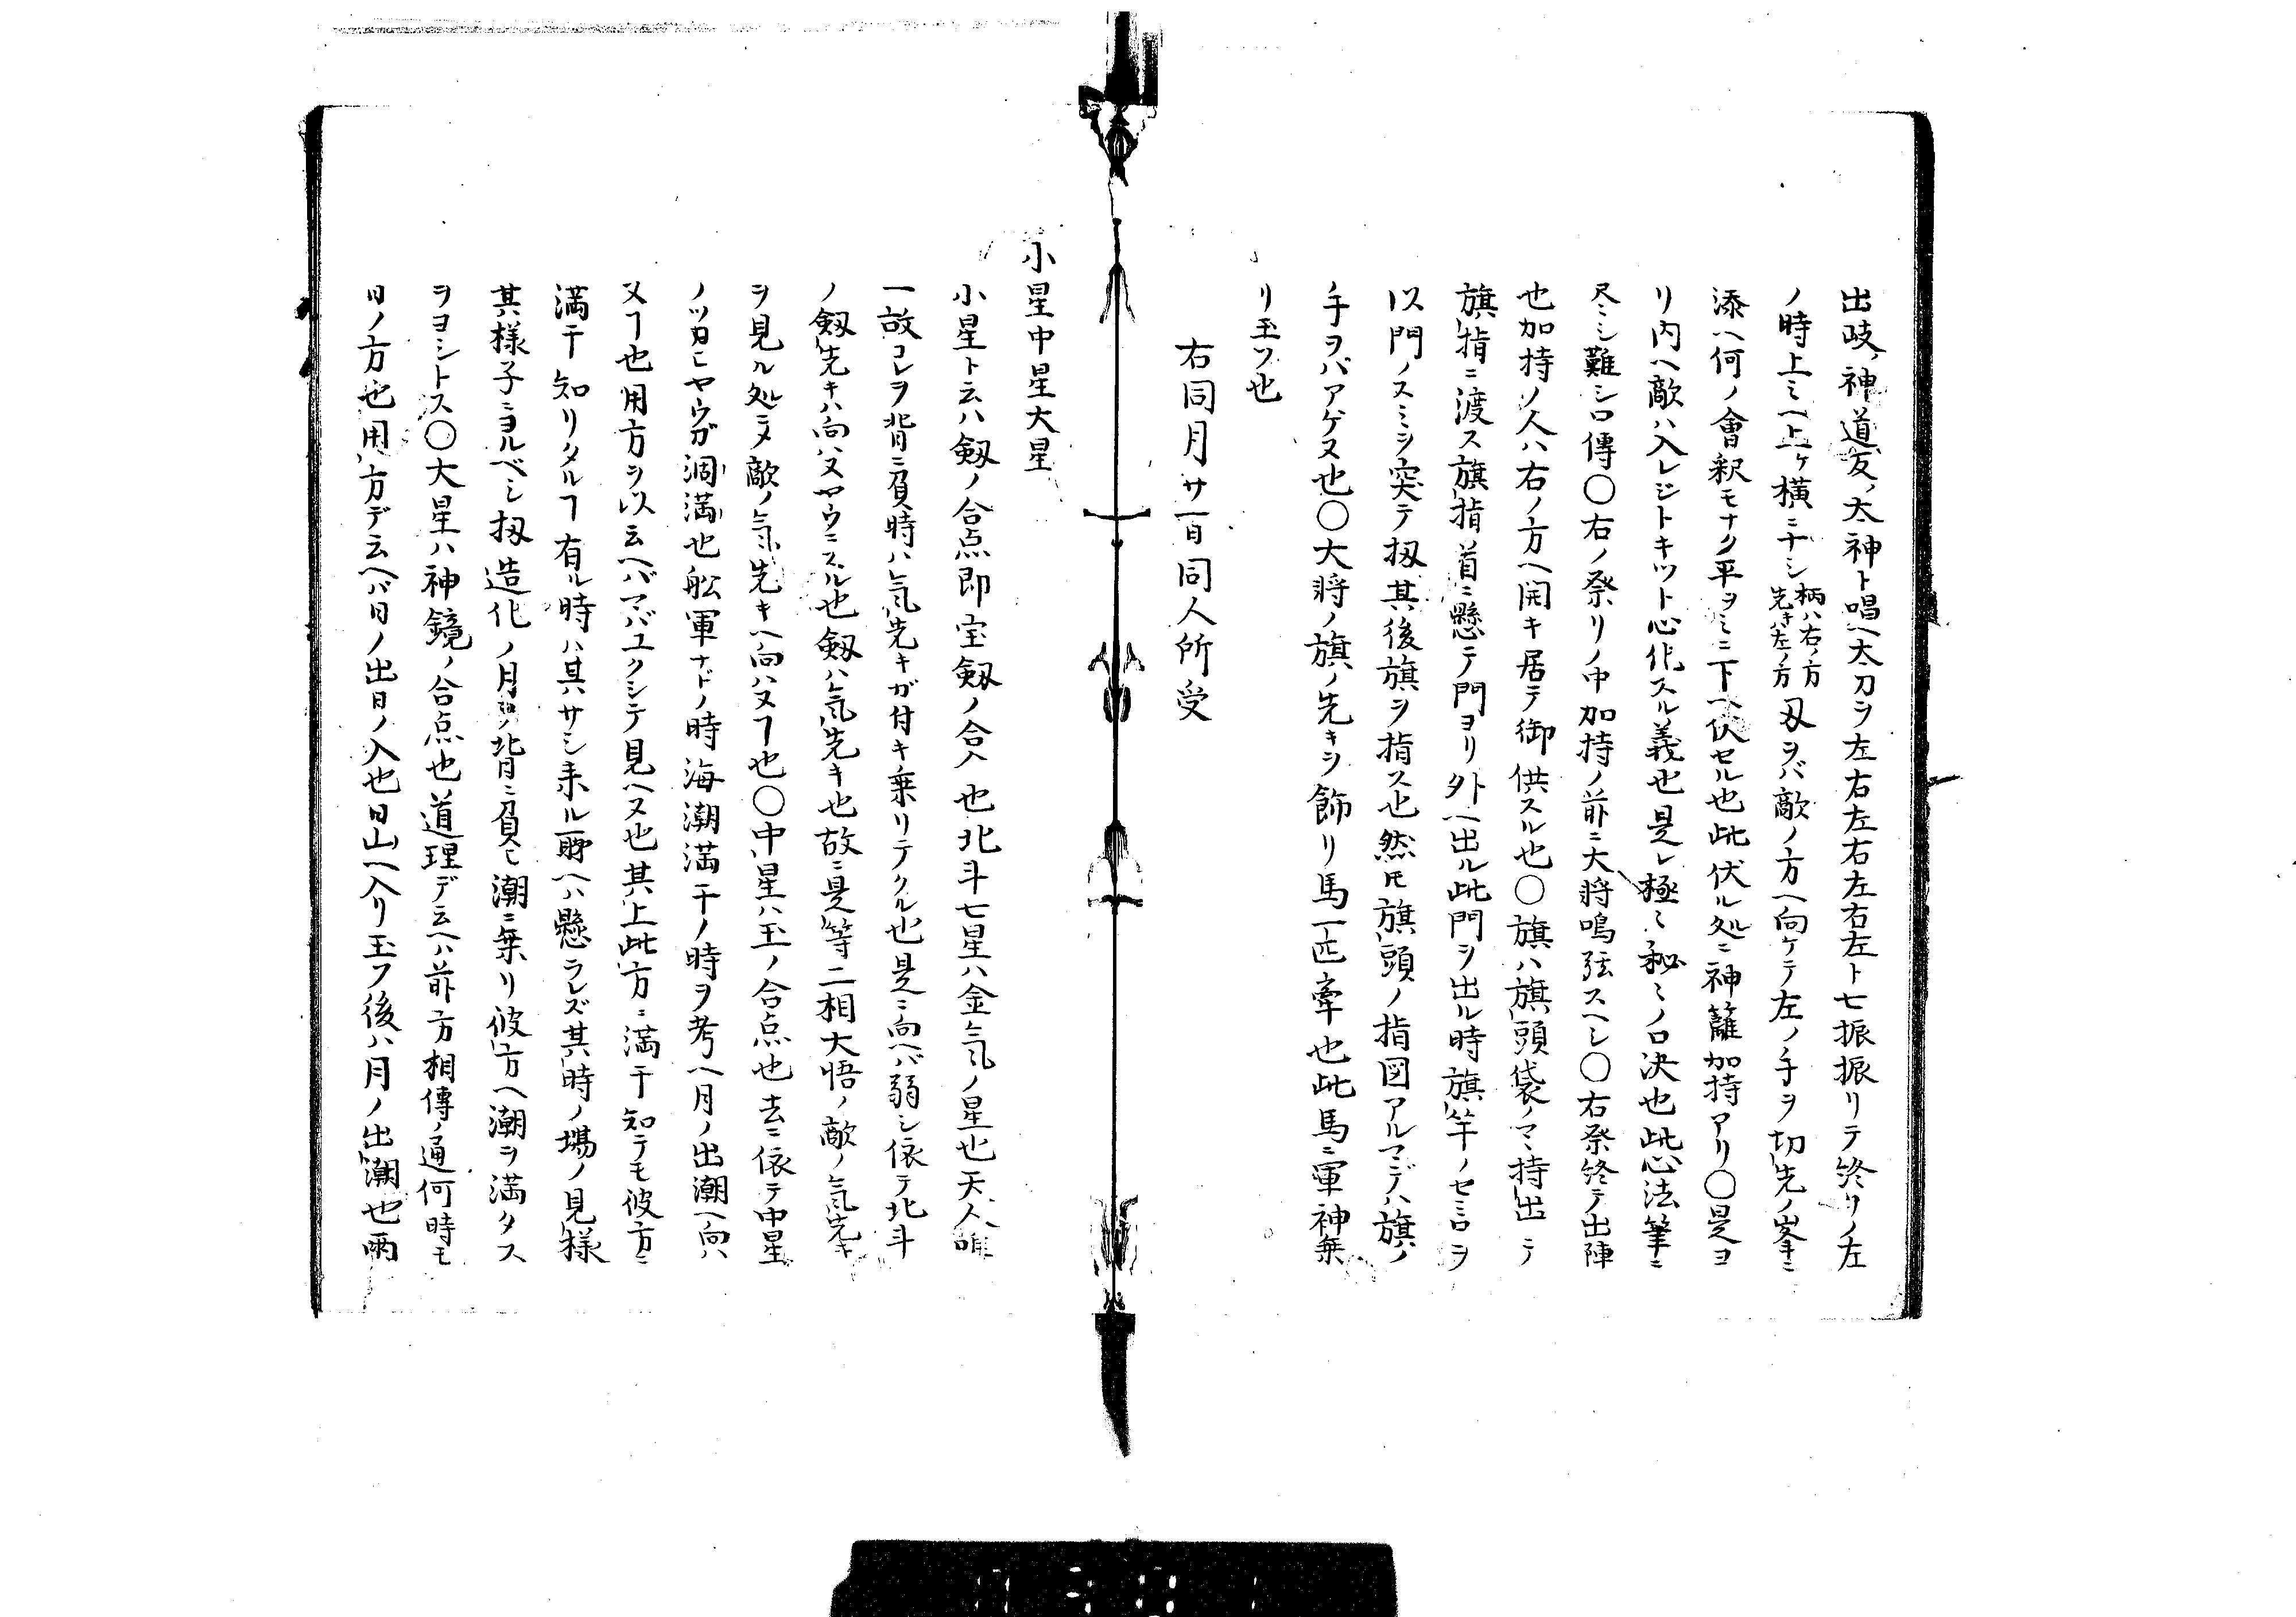 出岐ノ神道反ノ大神ト唱ヘ太刀ヲ左右左右左右左ト七振振リテ終リノ左
ノ時上ミヘ上ケ横ニナシ柄ハ右ノ方先キハ左ノ方刄ヲバ敵ノ方ヘ向ケテ左ノ手ヲ切先ノ峯ニ
添ヘ何ノ會釈モナク平ヲミニ下ヘ伏セル也此伏ル処ニ神籬加持アリ〇是ヨ
リ内ヘ敵ハ入レジトキツト心化スル義也是レ極ミ秘ミノ口決也此心法筆ニ
尽ミシ難シ口傳〇右ノ祭リノ中加持ノ前ニ大將鳴弦スヘシ〇右祭終テ出陣
也加持ノ人ハ右ノ方ヘ開キ居テ御供スル也〇旗ハ旗頭袋ノマヽ持出ニテ
旗指ニ渡ス旗指首ニ懸テ門ヨリ外ヘ出ル此門ヲ出ル時旗竿ノセミ口ヲ
以門ノスミヲ突テ扨其後旗ヲ指ス也然𪜈旗頭ノ指図アルマデハ旗ノ
手ヲバアゲヌ也〇大將ノ旗ノ先キヲ飾リ馬一匹牽也此馬ニ軍神乗
リ玉フ也
右同月廿一日同人所受
小星中星大星
小星ト云ハ劔ノ合点即宝劔ノ合入也北斗七星ハ金氣ノ星也天人唯
一故コレヲ背ニ負時ハ氣先キガ付キ乗リテクル也是ニ向ヘバ弱シ依テ北斗
ノ劔先キハ向ハヌヤウニスル也劔ハ氣先キ也故ニ是等二相大悟ノ敵ノ氣先キ
ヲ見ル処ニヌ敵ノ氣先キヘ向ハヌヿ也〇中星ハ玉ノ合点也去ニ依テ中星
ノツカヒヤウガ涸満也舩軍ナドノ時海潮満干ノ時ヲ考ヘ月ノ出潮ヘ向ハ
ヌヿ也用方ヲ以云ヘバマバユクシテ見ヘヌ也其上此方ニ満干知テモ彼方ニ
満干知リタルヿ有ル時ハ其ハサシ来ル所ヘハ懸ラレズ其時ノ場ノ見様
其様子ニヨルベシ扨造化ノ月ノ背ニ負ヒ潮ニ乗リ彼方ヘ潮ヲ満タス
ヲヨシトス〇大星ハ神鏡ノ合点也道理デ云ヘハ前方相傳ノ通何時モ
日ノ方也用方デ云ヘバ日ノ出日ノ入也日山ヘ入リ玉フ後ハ月ノ出潮也雨